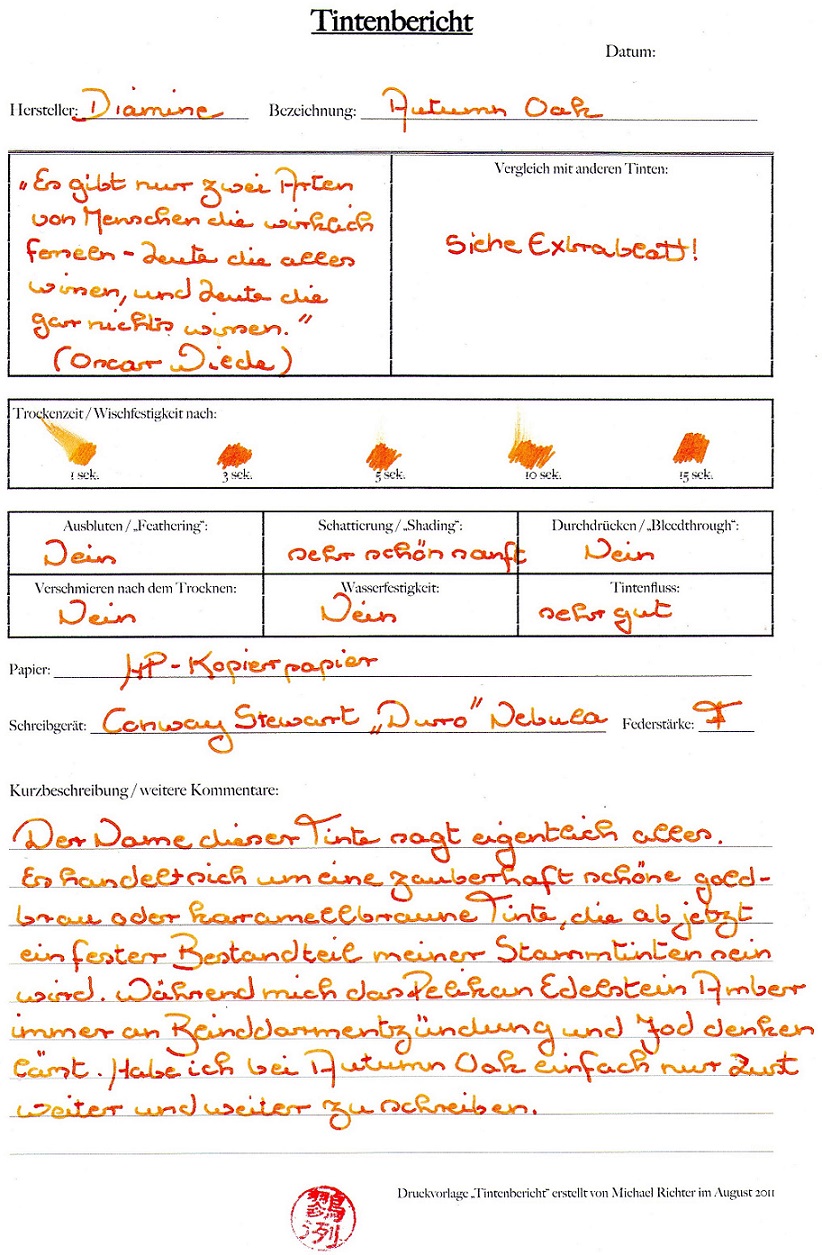 Tintenbericht
Datum:
Hersteller: Diamine Bezeichnung: Autumn Oak
„Es gibt nur zwei Arten
von Menschen die wirklich
fesseln - Leute die alles
wissen, und Leute die
gar nichts wissen."
(Oscar Wilde)
Vergleich mit anderen Tinten:
Siehe Extrablatt!
Trockenzeit / Wischfestigkeit nach:
1 sek. 3 sek. 5 sek. 10 sek. 15 sek.
Ausbluten / „Feathering": Schattierung / „Shading": Durchdrücken / „Bleedthrough":
Nein sehr schön sanft Nein
Verschmieren nach dem Trocknen: Wasserfestigkeit: Tintenfluss:
Nein Nein sehr gut
Papier: HP-Kopierpapier
Schreibgerät: Conway Stewart „Durro" Nebula Federstärke: F
Kurzbeschreibung / weitere Kommentare:
Der Name dieser Tinte sagt eigentlich alles.
Es handelt sich um eine zauberhaft schöne gold-
brau oder karamellbraune Tinte, die ab jetzt
ein fester Bestandteil meiner Stammtinten sein
wird. Während mich das Pelikan Edelstein Amber
immer an Blinddarmentzündung und Jod denken
lässt. Habe ich bei Autumn Oak einfach nur Lust
weiter und weiter zu schreiben.
Druckvorlage „Tintenbericht" erstellt von Michael Richter im August 2011